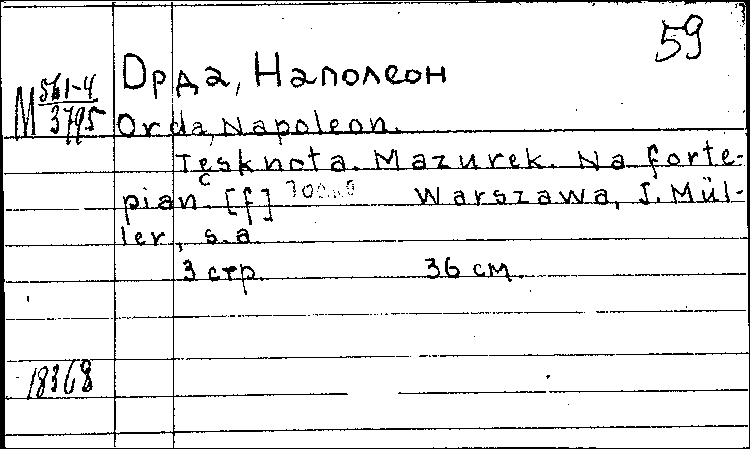 59
M 561-4
3795
Орда, Наполеон
Orda, Napoleon.
Tęsknota. Mazurek. Na forte-
pian. [f] Warszawa, J. Mül-
ler, s.a.
3 стр. 36 см.
18368